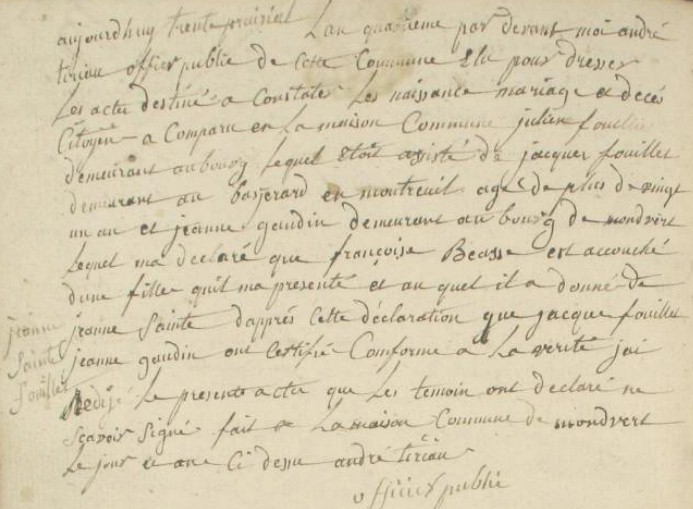 aujourdhuy trente prairial L an quatrieme par devant moi andré
tiriau officier public de Cette Commune Elu pour dresser
Les actes destiné a Constater Les naissance mariage et décés
Citoÿen a Comparu en La maison Commune julien fouillet
demeurant au bourg Lequel Etoit assisté de jacques fouillet
demeurant au basjerard en montreuil agé de plus de vingt
un an et jeanne gaudin demeurant au bourg de mondvert
Lequel ma declaré que françoise Beasse est accouché
dune fille quil ma presenté et au quel il a donné de
jeanne Sainte daprés Cette déclaration que jacque fouillet
jeanne gaudin ont Certifié Conforme a La verité jai
Redijé Le present actu que Les temoin ont declaré ne
sçavoir Signé fait La maison Commune de mondvert
Le jour et an Ci dessu andré tiriau
officier public
jeanne
Sainte
fouillet